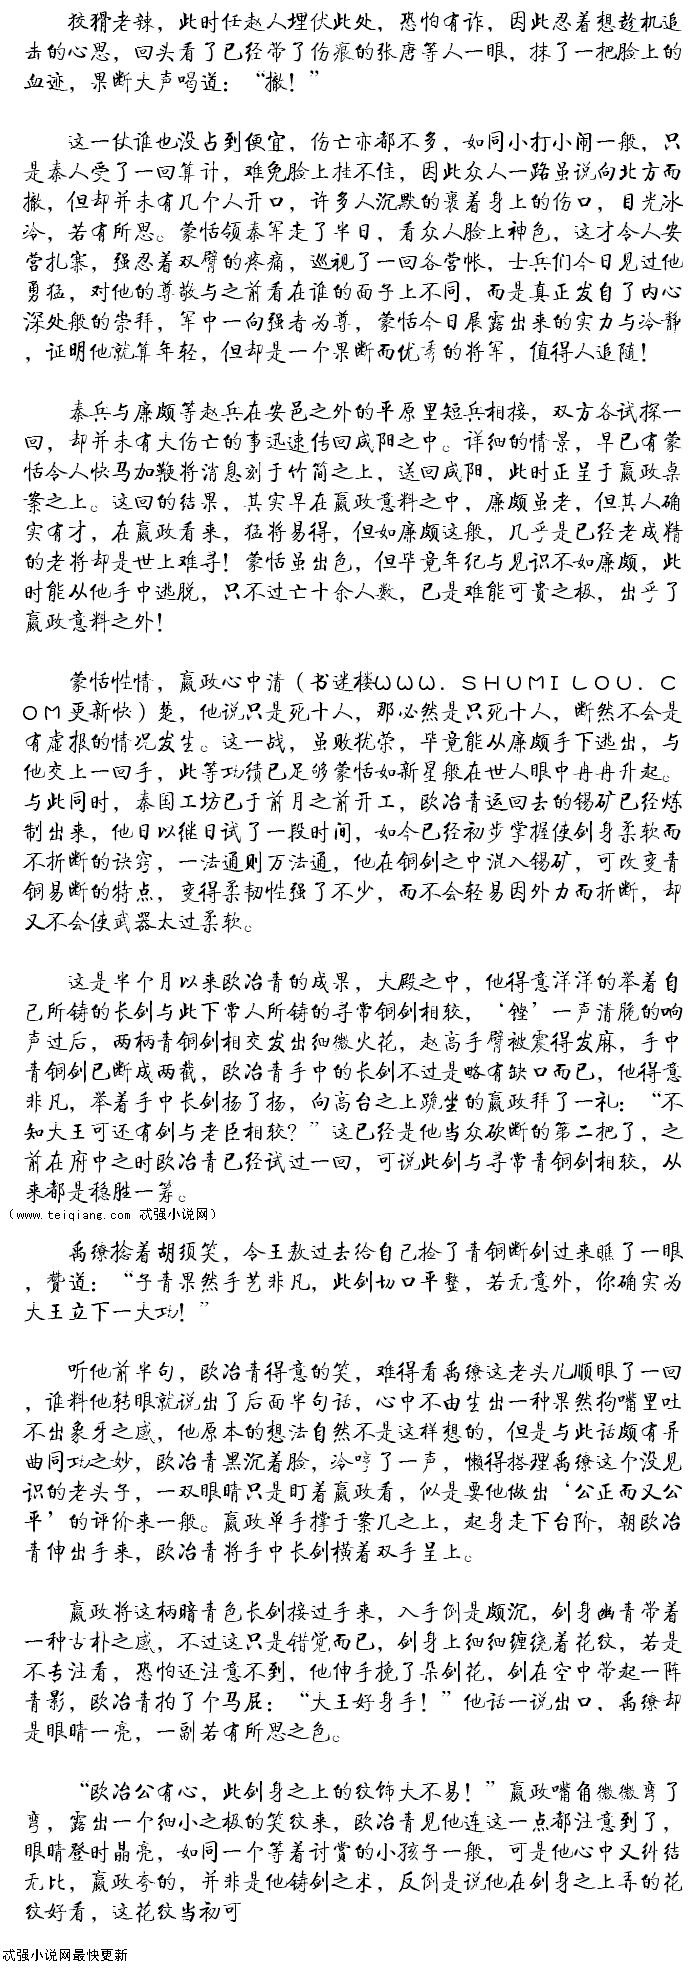 狡猾老辣，此时任赵人埋伏此处，恐怕有诈，因此忍着想趁机追
击的心思，回头看了已经带了伤痕的张唐等人一眼，抹了一把脸上的
血迹，果断大声喝道：“撤！”
这一仗谁也没占到便宜，伤亡亦都不多，如同小打小闹一般，只
是秦人受了一回算计，难免脸上挂不住，因此众人一路虽说向北方而
撤，但却并未有几个人开口，许多人沉默的裹着身上的伤口，目光冰
冷，若有所思。蒙恬领秦军走了半日，看众人脸上神色，这才令人安
营扎寨，强忍着双臂的疼痛，巡视了一回各营帐，士兵们今日见过他
勇猛，对他的尊敬与之前看在谁的面子上不同，而是真正发自了内心
深处般的崇拜，军中一向强者为尊，蒙恬今日展露出来的实力与冷静
，证明他就算年轻，但却是一个果断而优秀的将军，值得人追随！
秦兵与廉颇等赵兵在安邑之外的平原里短兵相接，双方各试探一
回，却并未有大伤亡的事迅速传回咸阳之中。详细的情景，早已有蒙
恬令人快马加鞭将消息刻于竹简之上，送回咸阳，此时正呈于嬴政桌
案之上。这回的结果，其实早在嬴政意料之中，廉颇虽老，但其人确
实有才，在嬴政看来，猛将易得，但如廉颇这般，几乎是已经老成精
的老将却是世上难寻！蒙恬虽出色，但毕竟年纪与见识不如廉颇，此
时能从他手中逃脱，只不过亡十余人数，已是难能可贵之极，出乎了
嬴政意料之外！
蒙恬性情，嬴政心中清（书迷楼ＷＷＷ．ＳＨＵＭＩＬＯＵ．Ｃ
ＯＭ更新快）楚，他说只是死十人，那必然是只死十人，断然不会是
有虚报的情况发生。这一战，虽败犹荣，毕竟能从廉颇手下逃出，与
他交上一回手，此等功绩已足够蒙恬如新星般在世人眼中冉冉升起。
与此同时，秦国工坊已于前月之前开工，欧冶青运回去的锡矿已经炼
制出来，他日以继日试了一段时间，如今已经初步掌握使剑身柔软而
不折断的诀窍，一法通则万法通，他在铜剑之中混入锡矿，可改变青
铜易断的特点，变得柔韧性强了不少，而不会轻易因外力而折断，却
又不会使武器太过柔软。
这是半个月以来欧冶青的成果，大殿之中，他得意洋洋的举着自
己所铸的长剑与此下常人所铸的寻常铜剑相较，‘铿’一声清脆的响
声过后，两柄青铜剑相交发出细微火花，赵高手臂被震得发麻，手中
青铜剑已断成两截，欧冶青手中的长剑不过是略有缺口而已，他得意
非凡，举着手中长剑扬了扬，向高台之上跪坐的嬴政拜了一礼：“不
知大王可还有剑与老臣相较？”这已经是他当众砍断的第二把了，之
前在府中之时欧冶青已经试过一回，可说此剑与寻常青铜剑相较，从
来都是稳胜一筹。
（www.teiqiang.com 忒强小说网）
禹缭捻着胡须笑，令王敖过去给自己捡了青铜断剑过来瞧了一眼
，赞道：“子青果然手艺非凡，此剑切口平整，若无意外，你确实为
大王立下一大功！”
听他前半句，欧冶青得意的笑，难得看禹缭这老头儿顺眼了一回
，谁料他转眼就说出了后面半句话，心中不由生出一种果然狗嘴里吐
不出象牙之感，他原本的想法自然不是这样想的，但是与此话颇有异
曲同功之妙，欧冶青黑沉着脸，冷哼了一声，懒得搭理禹缭这个没见
识的老头子，一双眼睛只是盯着嬴政看，似是要他做出‘公正而又公
平’的评价来一般。嬴政单手撑于案几之上，起身走下台阶，朝欧冶
青伸出手来，欧冶青将手中长剑横着双手呈上。
嬴政将这柄暗青色长剑接过手来，入手倒是颇沉，剑身幽青带着
一种古朴之感，不过这只是错觉而已，剑身上细细缠绕着花纹，若是
不专注看，恐怕还注意不到，他伸手挽了朵剑花，剑在空中带起一阵
青影，欧冶青拍了个马屁：“大王好身手！”他话一说出口，禹缭却
是眼睛一亮，一副若有所思之色。
“欧冶公有心，此剑身之上的纹饰大不易！”嬴政嘴角微微弯了
弯，露出一个细小之极的笑纹来，欧冶青见他连这一点都注意到了，
眼睛登时晶亮，如同一个等着讨赏的小孩子一般，可是他心中又纠结
无比，嬴政夸的，并非是他铸剑之术，反倒是说他在剑身之上弄的花
纹好看，这花纹当初可
忒强小说网最快更新